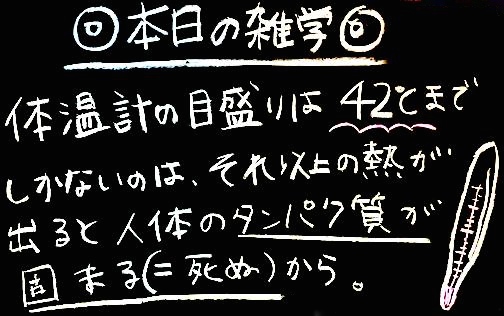 ◎本日の雑学◎
体温計の目盛りは42℃まで
しかないのは、それ以上の熱が
出ると人体のタンパク質が
固まる(=死ぬ)から。